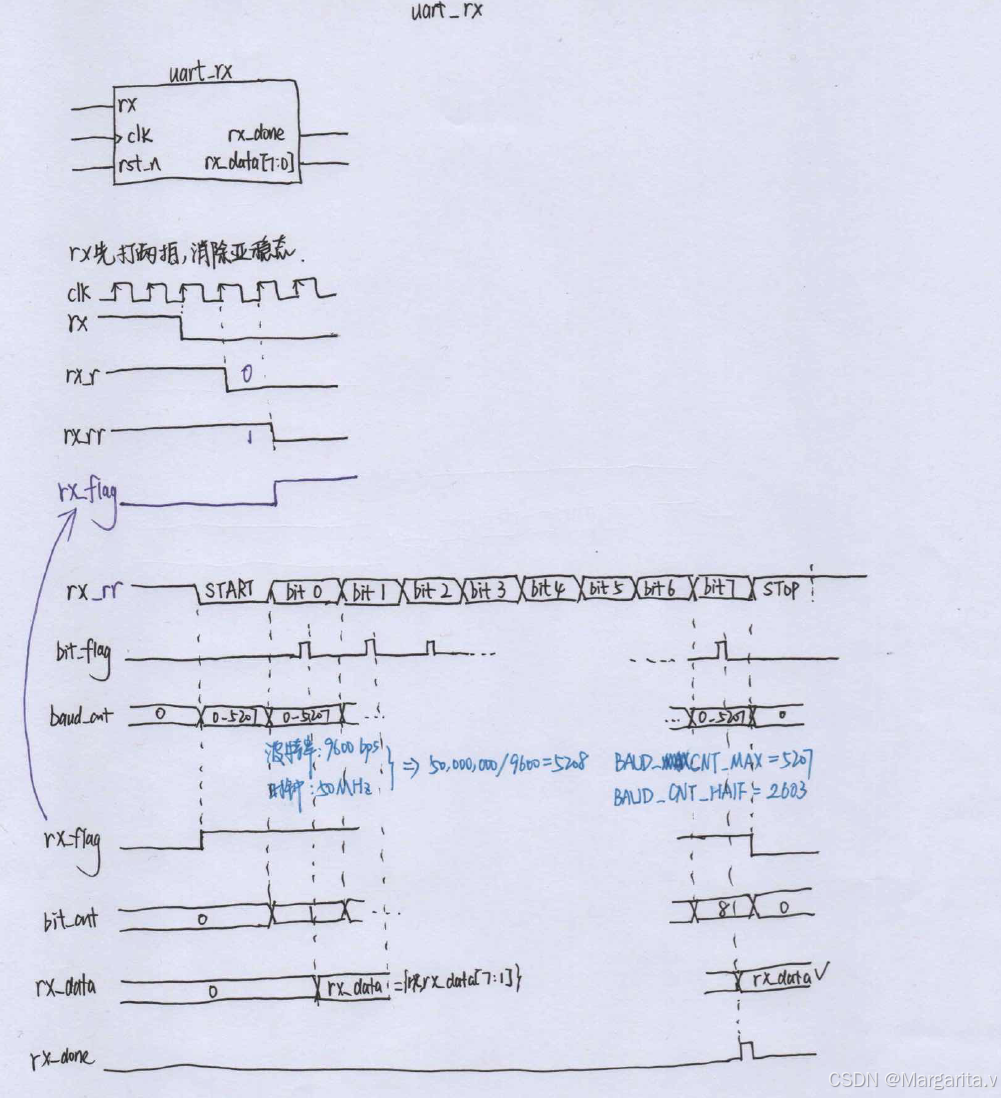 uart_rx
uart_rx
rx
clk
rx_done
rst_n
rx_data[7:0]
rx先打两拍,消除亚稳态.
clk
rx
rx_r
0
rx_rr
1
rx_flag
rx_rr
START
bit 0
bit 1
bit 2
bit 3
bit 4
bit 5
bit 6
bit 7
STOP
bit_flag
baud_cnt
0
0-5207
0-5207
0-5207
0
波特率:9600 bps
时钟:50MHz
=> 50,000,000/9600=5208
BAUD_CNT_MAX=5207
BAUD_CNT_HAIF=2603
rx_flag
bit_cnt
0
1
8
0
rx_data
0
rx_data
={rx,rx_data[7:1]}
rx_data√
rx_done
CSDN @Margarita.v